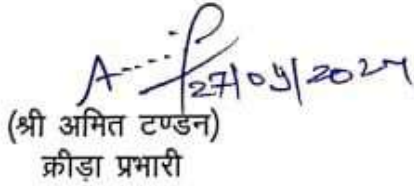 27/09/2024
(श्री अमित टण्डन)
क्रीड़ा प्रभारी